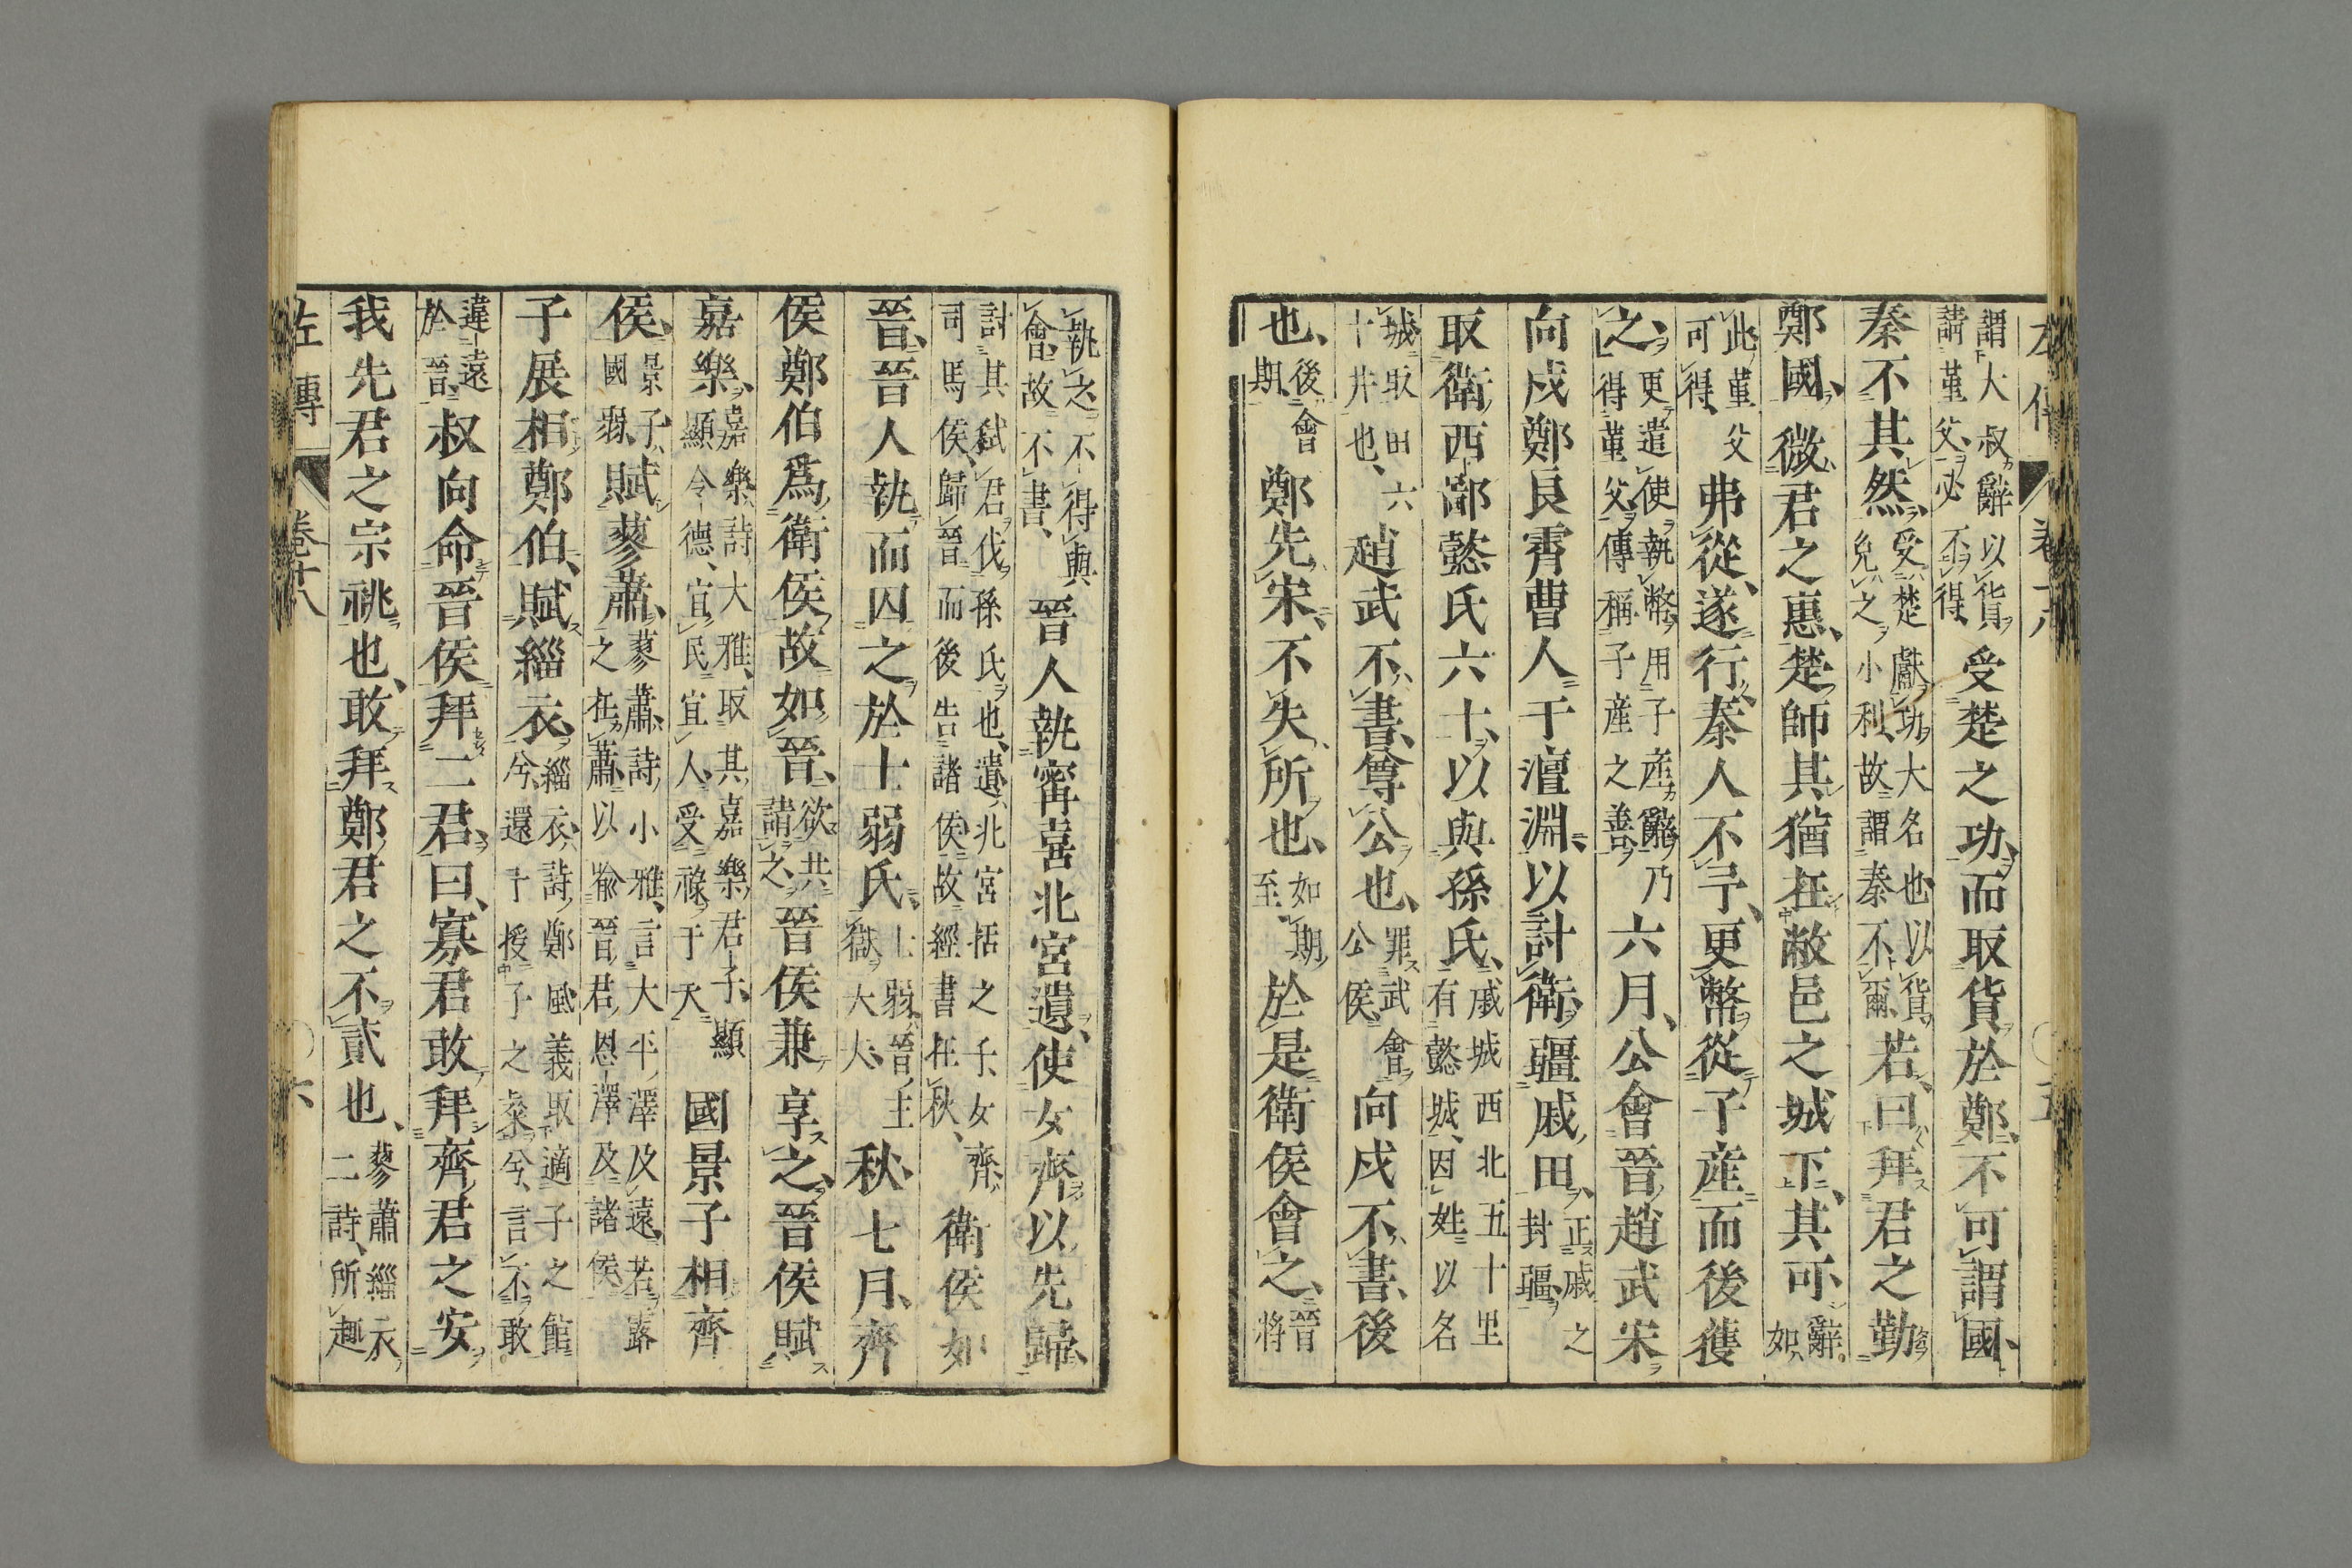 左傳 卷十八 〇五
謂大叔辭以貨
請堇父必不得
受楚之功而取貨於鄭不可謂國
秦不其然
受楚獻功大名也以貨
免之小利故謂秦不爾
若曰拜君之勤
鄭國微君之惠楚師其猶在敝邑之城下其可
辭
如
此堇父
可得
弗從遂行秦人不予更幣從子産而後獲
之
更遣使執幣用子産辭乃
得堇父傳稱子産之善
六月公會晉趙武宋
向戌鄭良霄曹人于澶淵以討衛疆戚田
正戚之
封疆
取衛西鄙懿氏六十以與孫氏
戚城西北五十里
有懿城因姓以名
城取田六
十井也
趙武不書尊公也
罪武會
公侯
向戌不書後
也
後會
期
鄭先宋不失所也
如期
至
於是衛侯會之
晉
将
執之不得與
會故不書
晉人執甯喜北宮遺使女齊以先歸
討其弑君伐孫氏也遺北宮括之子女齊
司馬侯歸晉而後告諸侯故經書在秋
衛侯如
晉晉人執而囚之於士弱氏
士弱晉主
獄大夫
秋七月齊
侯鄭伯爲衛侯故如晉
欲共
請之
晉侯兼享之晉侯賦
嘉樂
嘉樂詩大雅取其嘉樂君子顯
顯令德宜民宜人受祿于天
國景子相齊
侯
景子
國弱
賦蓼蕭
蓼蕭詩小雅言大平澤及遠若露
之在蕭以喻晉君恩澤及諸侯
子展相鄭伯賦緇衣
緇衣詩鄭風義取適子之館
兮還予授子之粲兮言不敢
違遠
於晉
叔向命晉侯拜二君曰寡君敢拜齊君之安
我先君之宗祧也敢拜鄭君之不貳也
蓼蕭緇衣
二詩所趣
左傳 卷十八 〇六